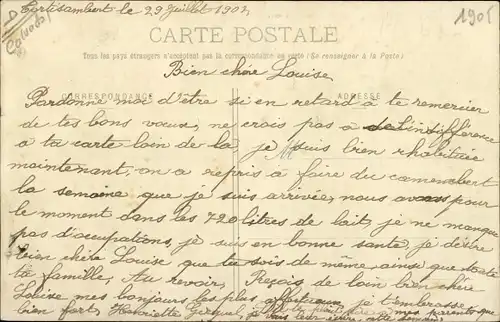 Fortisambert le 29 Juillet 1904
1905
Calvados
CARTE POSTALE
Tous les pays étrangers n'acceptent pas la correspondance au recto (Se renseigner à la Poste)
Bien chère Louise
CORRESPONDANCE ADRESSE
Pardonne moi d'être si en retard à te remercier
de tes bons vœux, ne crois pas à de l'indifférence
à ta carte loin de là, je suis bien rhabituée
maintenant, on a repris à faire du camembert
la semaine que je suis arrivée, nous avons pour
le moment dans les 720 litres de lait, je ne manque
pas d'occupations, je suis en bonne santé, je désire
bien chère Louise que tu sois de même, ainsi que toute
ta famille, Au revoir, Reçois de loin bien chère
Louise mes bonjours les plus affectueux, je t'embrasse
bien fort, Henriette mes parents que
je vais leur écrire cette semaine